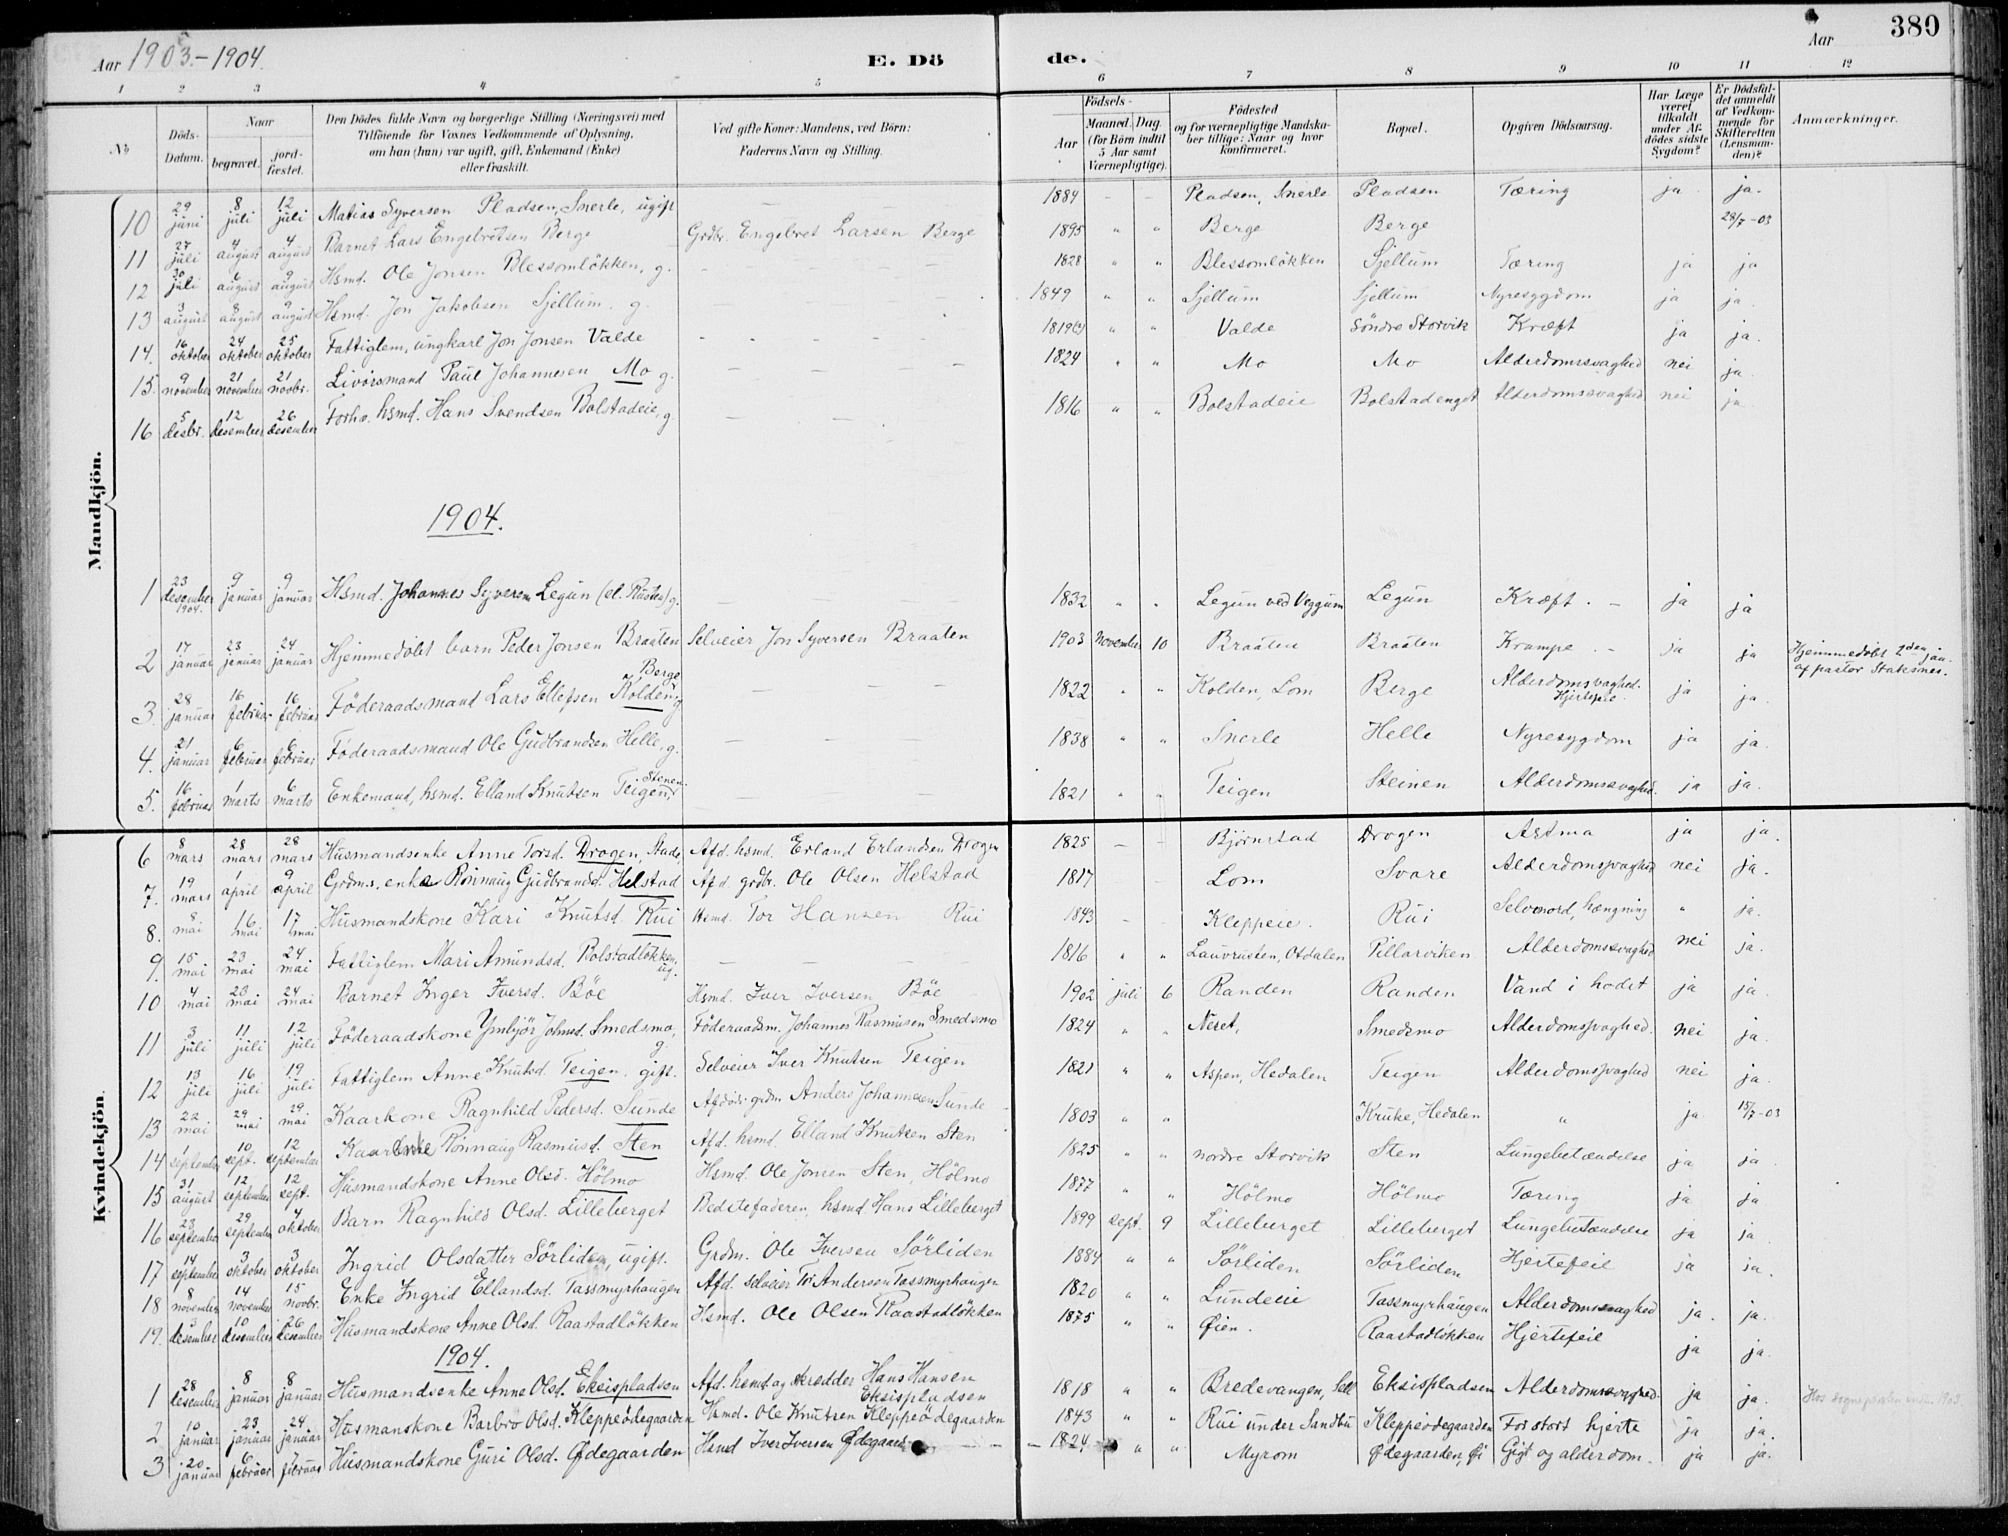 Aar 1903.-1904. E. Dö de. Aar 380
1 2 3 4 5 6 7 8 9 10 11 12
No Döds-Datum. Naar begravet. jord-fæstet. Den Dödes fulde Navn og borgerlige Stilling (Næringsvei) med Tilföiende for Voxnes Vedkommende af Oplysning, om han (hun) var ugift, gift, Enkemand (Enke) eller fraskilt. Ved gifte Koner: Mandens, ved Börn: Faderens Navn og Stilling. Födsels- Aar Maaned. Dag (for Börn indtil 5 Aar samt Værnepligtige). Födested og for værnepligtige Mandskaber tillige: Naar og hvor konfirmeret. Bopæl. Opgiven Dödsaarsag. Har Læge været tilkaldt under Afdödes sidste Sygdom? Er Dödsfaldet anmeldt af Vedkommende for Skifteretten (Lensmanden)? Anmærkninger.
Mandkjön.
10 29 juni 8 juli 12 juli Matias Syversen Pladsen, Snerle, ugift — — 1884 - - Pladsen, Snerle Pladsen Tæring ja ja.
11 27 juli 4 august 4 august Barnet Lars Engebretsen Berge Grdbr. Engebret Larsen Berge 1895 " " Berge Berge 28/7-03
12 30 juli 6 august 9 august Hsmd. Ole Jonsen Blessomlökken, g. - - - 1828 " " Blessomlökken Sjellum Tæring ja ja
13 3 august 8 august 9 august Hsmd. Jon Jakobsen Sjellum. g. - - - 1849 " " Sjellum Sjellum Nyresygdom ja ja.
14. 16 oktober 24 oktober 25 oktober Fattiglem, ungkarl Jon Jonsen Valde - - - 1819(?) " " Valde Söndre Storvik Kræft ja ja.
15. 9 november 21 november 21 novbr. Livörsmand Paul Johannesen Mo g. - - - 1824 " " Mo Mo Alderdomssvaghed nei ja
16 5 desbr. 12 desember 26 desember Forhv. hsmd. Hans Svendsen Bolstadeie, g - - 1816 " " Bolstadeie Bolstadenget Alderdomssvaghed nei ja
1904.
1 23 desember 1904. 9 januar 9 januar Hsmd. Johannes Syversen Legun (el. Rusten) g. — — 1832 " " Legun ved Veggum Legun Kræft. - ja ja
2 17 januar 23 januar 24 januar Hjemmedöbt barn Peder Jonsen Braaten Selveier Jon Syversen Braaten 1903 November 10 Braaten Braaten Krampe. - ja ja Hjemmedöbt 2den jan. af pastor Staksnes.
3. 28 januar 16 februar 16 februar Föderaadsmand Lars Ellefsen Kolden, g Berge — — — 1822 " " Kolden, Lom Berge Alderdomssvaghed. Hjertefeil. ja ja.
4. 21 januar 6 februar 6 februar Föderaadsmand Ole Gudbrandsen Helle, g. — — — 1838 " " Snerle Helle Nyresygdom ja ja.
5. 16 februar 1 marts 6 marts Enkemand, hsmd. Elland Knutsen Teigen, Stenen — — — 1821 " " Teigen Steinen Alderdomssvaghed. ja ja.
Kvindekjön.
6 8 mars 28 mars 28 mars Husmandsenke Anne Torsd. Drogen, Stade, Afd. hsmd. Erland Erlandsen Drogen 1825 — - Björnstad Drogen Astma ja ja.
7. 19 mars 1 april 9 april Grdms. enke Rönnaug Gudbrandsd. Helstad Afd. grdbr. Ole Olsen Helstad 1817 - Lom Svare Alderdomssvaghed nei ja.
8. 8. mai 16 mai 17 mai Husmandskone Kari Knutsd. Rui Hsmd. Tor Hansen Rui 1843 - - Kleppeie. Rui Selvmord, hængning " ja.
9. 15 mai 23 mai 24 mai Fattiglem Mari Amundsd. Bolstadlökken, ug. — — — 1816 " " Lauvrusten, Otdalen Pillarviken Alderdomssvaghed nei ja.
10 4 mai 23 mai 24 mai Barnet Inger Iversd. Böe Hsmd. Iver Iversen Böe 1902 juli 6 Randen Randen Vand i hodet ja ja.
11 3 juli 11 juli 12 juli Föderaadskone Ymbjör Johnsd. Smedsmo, g. Föderaadsm. Johannes Rasmusen Smedsmo 1824 " " Neset, Smedsmo Alderdomssvaghed. nei ja.
12 13 juli 16 juli 19 juli Fattiglem Anne Knutsd. Teigen. gift. Selveier Iver Knutsen Teigen 1821 " " Aspen, Hedalen Teigen Alderdomssvaghed nei ja.
13 22 mai 29 mai 29 mai Kaarkone Ragnhild Pedersd. Sunde Afdöde grdm Anders Johannesen Sunde 1803 " " Kruke, Hedalen " ja 15/7-03
14 1 september 10 sept. 12 september Kaarenke Rönnaug Rasmusd. Sten Afd. hsmd Elland Knutsen Sten 1825 " " nordre Storvik Sten Lungebetændelse ja ja.
15 31 august 12 september 12 sept. Husmandskone Anne Olsd. Hölmo Hsmd. Ole Jonsen Sten, Hölmo 1877 " " Hölmo Hölmo Tæring ja ja
16 23 september 29 september 4 oktober Barn Ragnhild Olsd. Lilleberget Bedstefaderen, hsmd Hans Lilleberget 1899 sept. 9 Lilleberget Lilleberget Lungebetændelse ja ja
17 14 september 3 oktober 3 oktober Ingrid Olsdatter Sörliden, ugift. Grdm. Ole Iversen Sörliden 1884 " " Sörliden Sörliden Hjertefeil ja ja.
18 8 november 14 november 15 novbr. Enke Ingrid Ellandsd. Tassmyrhaugen Afd. selveier Tor Andersen Tassmyrhaugen 1820 " " Lundeie Tassmyrhaugen Alderdomssvaghed ja. ja.
19. 3 desember 10 desember 26 desember Husmandskone Anne Olsd. Raastadlökken Hsmd. Ole Olsen Raastadlökken 1875 " " Øien. Raastadlökken Hjertefeil ja ja.
1904.
1 28 desember 8 januar 8 januar Husmandsenke Anne Olsd. Eksispladsen Afd. hsmd. og skredder Hans Hansen Eksispladsen 1818 " " Bredevangen, Sell Eksispladsen Alderdomssvaghed ja ja.
2 10 januar 23 januar 24 januar Husmanskone Barbro Olsd. Kleppeödegaarden Hsmd. Ole Knutsen Kleppeödegaarden 1843 " " Rui under Sandbu Kleppeödegaarden For stort hjerte ja ja.
3 20 januar 6 februar 7 februar Husmandskone Guri Olsd. Ødegaarden Hsmd Iver Iversen Ødegaard - - - 1824 " " Myrom Ødegaarden, Øi Gigt og alderdom. ja ja.